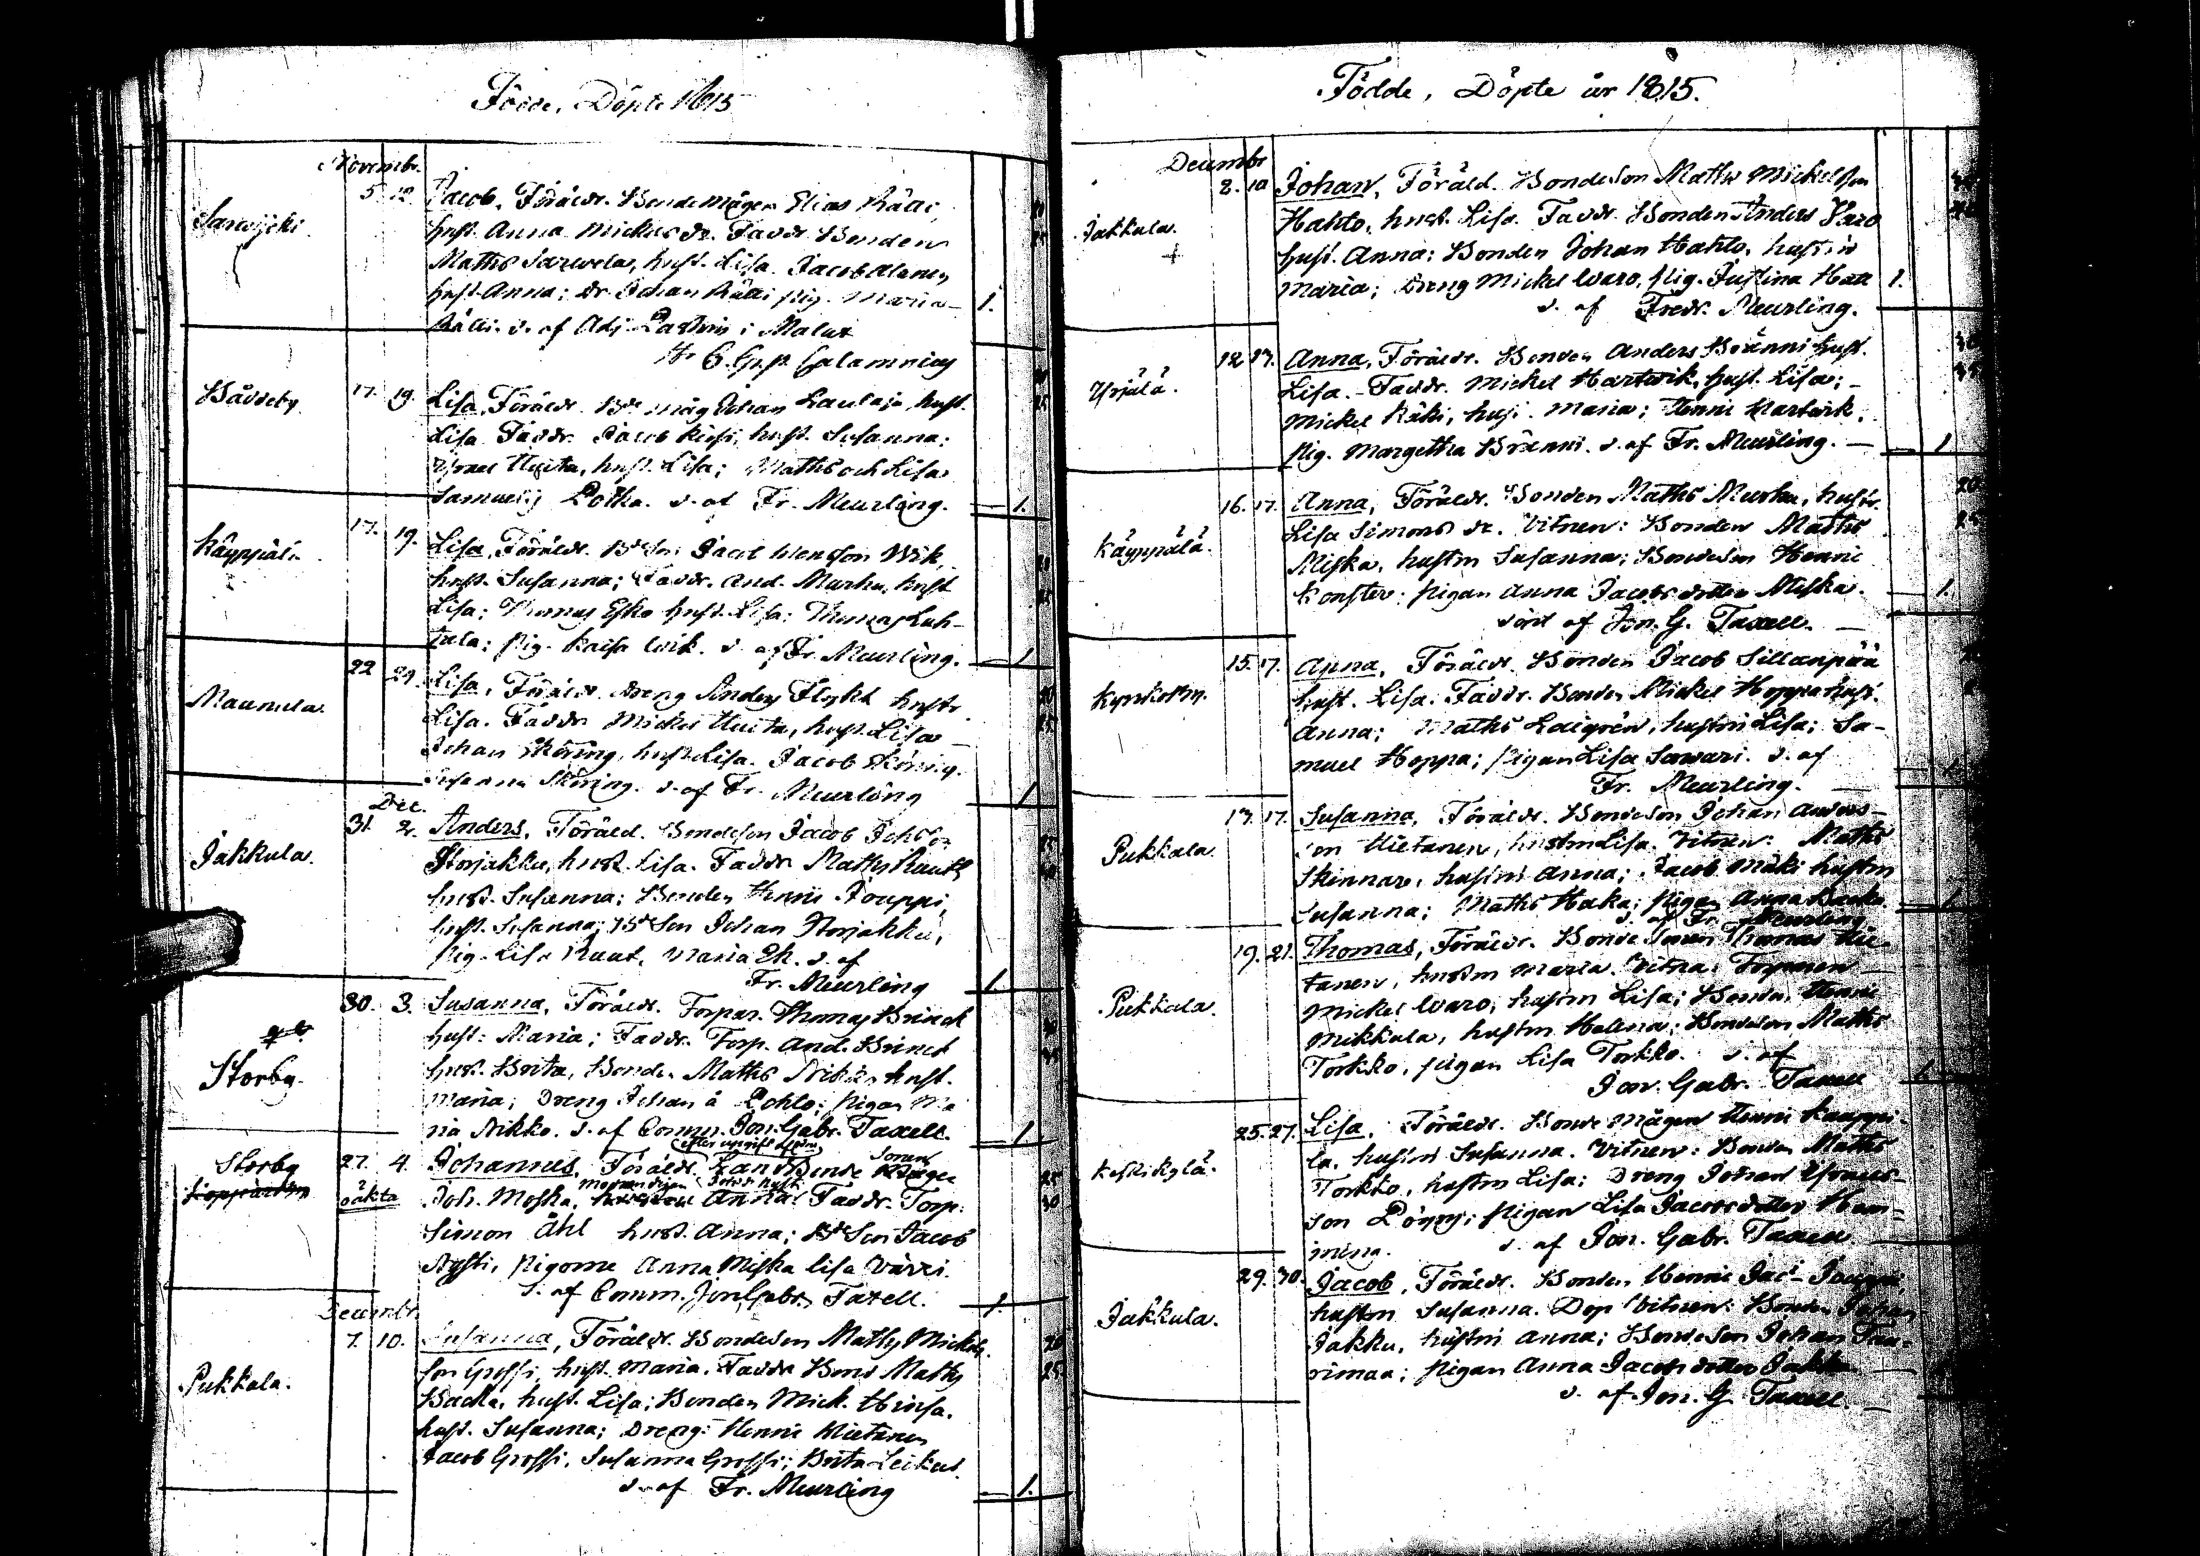 Födde, Döpte 1815
Novembr.
Sarvijoki
5. 12. Jacob, Föräldr. Bonde mågen Elias Rälli,
hust. Anna Mickels dr. Faddr. Bonden
Maths Sarvela, hust. Lisa. Jacob Alanen
hust. Anna; Dr. Johan Rälli pig. Maria
Rälli. d. af Adj. Pastorn i Malax 1.
Hr C. Calamnius
17. 19. Lisa, Föräldr. Bde måg Johan Laulaja, hust.
Lisa. Faddr. Jacob hust. Susanna;
Israel Uuita, hust. Lisa; Maths och Lisa
Samuelis Potka. d. af Fr. Meurling. 1.
Käppälä
17. 19. Lisa, Föräldr. Bde Son Jacob Henrson Wik,
hust. Susanna; Faddr. And. Marku, hust
Lisa; Thomas Esko hust. Lisa; Thomas Luh-
tala; pig. Kaisa Wik. d. af Fr. Meurling. 1
Maunula.
22 29. Lisa, Föräldr. Dreng Anders Flykt hustr.
Lisa. Faddr. Mickel Uuita, hust. Lisa
Johan Köning, hust. Lisa. Jacob Köning.
Susanna Köning. d. af Fr. Meurling 1
Dec.
Jakkula.
31. 2. Anders, Föräld. Bondeson Jacob Johsson
Storjakku, hust. Lisa. Faddr. Maths Raut
hust. Susanna; Bonden Henric Jouppi,
hust. Susanna; Bde Son Johan Storjakku,
pig. Lisa Raut, Maria Ek. d. af
Fr. Meurling 1.
Storby.
30. 3. Susanna, Föräldr. Torpar. Thomas Brinck
hust: Maria; Faddr. Torp. And. Brinck
hust. Brita, Bonden Maths Nikko hust.
Maria; Dreng Johan å Pohlo; pigan Ma
ria Nikko. d. af Comm. Jon. Gabr. Taxell. 1
efter uppgift
Storby
27. 4. Johannes, Föräldr. Landbonde Sonen
oäkta Joh. Moska, Anna Faddr. Torp.
Simon Åhl hust. Anna; Bde Son Jacob
Nysti, pigorne Anna Miska Lisa Värri.
d. af Comm. Jon Gabr. Taxell. 1.
Decembr.
Pukkala.
7. 10. Susanna, Föräldr. Bondeson Maths Mickels
son Grossi, hust. Maria. Faddr. Bond Maths
Backa, hust. Lisa; Bonden Mick. Hinsa.
hust. Susanna; Dreng: Henric Kietanen
Jacob Grossi, Susanna Grossi; Brita Leikus.
d. af Fr. Meurling 1.
Födde, Döpte år 1815.
Decembr
Jakkula.
2. 10 Johan, Föräld. Bondeson Maths Mickelsson
Hahto, hust. Lisa. Faddr. Bonden Anders Varo
hust. Anna; Bonden Johan Hahto, hustru
Maria; Dreng Mickel Waro, pig. Justina
d. af Fredr. Meurling. 1.
Yrjälä.
12 17. Anna, Föräldr. Bonden Anders Bränni hust.
Lisa. Faddr. Mickel Hartwik, hust. Lisa;
Mickel Räki, hust. Maria; Henric Hartwik.
pig. Margetha Bränni. d. af Fr. Meurling. 1
Käyppälä.
16. 17. Anna, Föräldr. Bonden Maths Murku, hustr.
Lisa Simons dr. Vitnen: Bonden Maths
Miska, hustrn Susanna; Bondeson Henric
Konster; pigan Anna Jacobs dotter Miska. 1.
döpt af Jon. G. Taxell.
Kyrkoby.
15. 17. Anna, Föräldr. Bonden Jacob Sillanpää
hust. Lisa. Faddr. Bonden Mickel Hoppa hust.
Anna; Maths Laigren, hustrn Lisa; Sa-
muel Hoppa; pigan Lisa Sawari. d. af
Fr. Meurling.
Pukkala.
17. 17. Susanna, Föräldr. Bondeson Johan Anders-
son Kietanen, hustrn Lisa. Vitnen: Maths
Skinnar, hustrn Anna; Jacob Mäki hustrn
Susanna; Maths Haka; pigan Anna Backa.
d. af Fr. Meurling
Pukkala.
19. 21. Thomas, Föräldr. Bonde Sonen Thomas Kie-
tanen, hustrn Maria. Vitna: Torparen
Mickel Waro, hustrn Lisa; Bonden Henric
Mikkala, hustrn Helena; Bondeson Maths
Torkko, pigan Lisa Torkko. d. af
Jon. Gabr. Taxell
Keskikylä.
25. 27. Lisa, Föräldr. Bonde mågen Henric Kauppi-
la, hustrn Susanna. Vitnen: Bonden Maths
Torkko, hustrn Lisa; Dreng Johan Israels-
son Pöyry; pigan Lisa Jacobsdotter Ham-
mina. d. af Jon. Gabr. Taxell
Jakkula.
29. 30. Jacob, Föräldr. Bonden Henric Jac: Jouppi,
hustrn Susanna. Dop Vitnen: Bonden Johan
Jakku, hustrn Anna; Bondeson Johan Saa-
rimaa; pigan Anna Jacobs dotter Jakku
d. af Jon. G. Taxell.